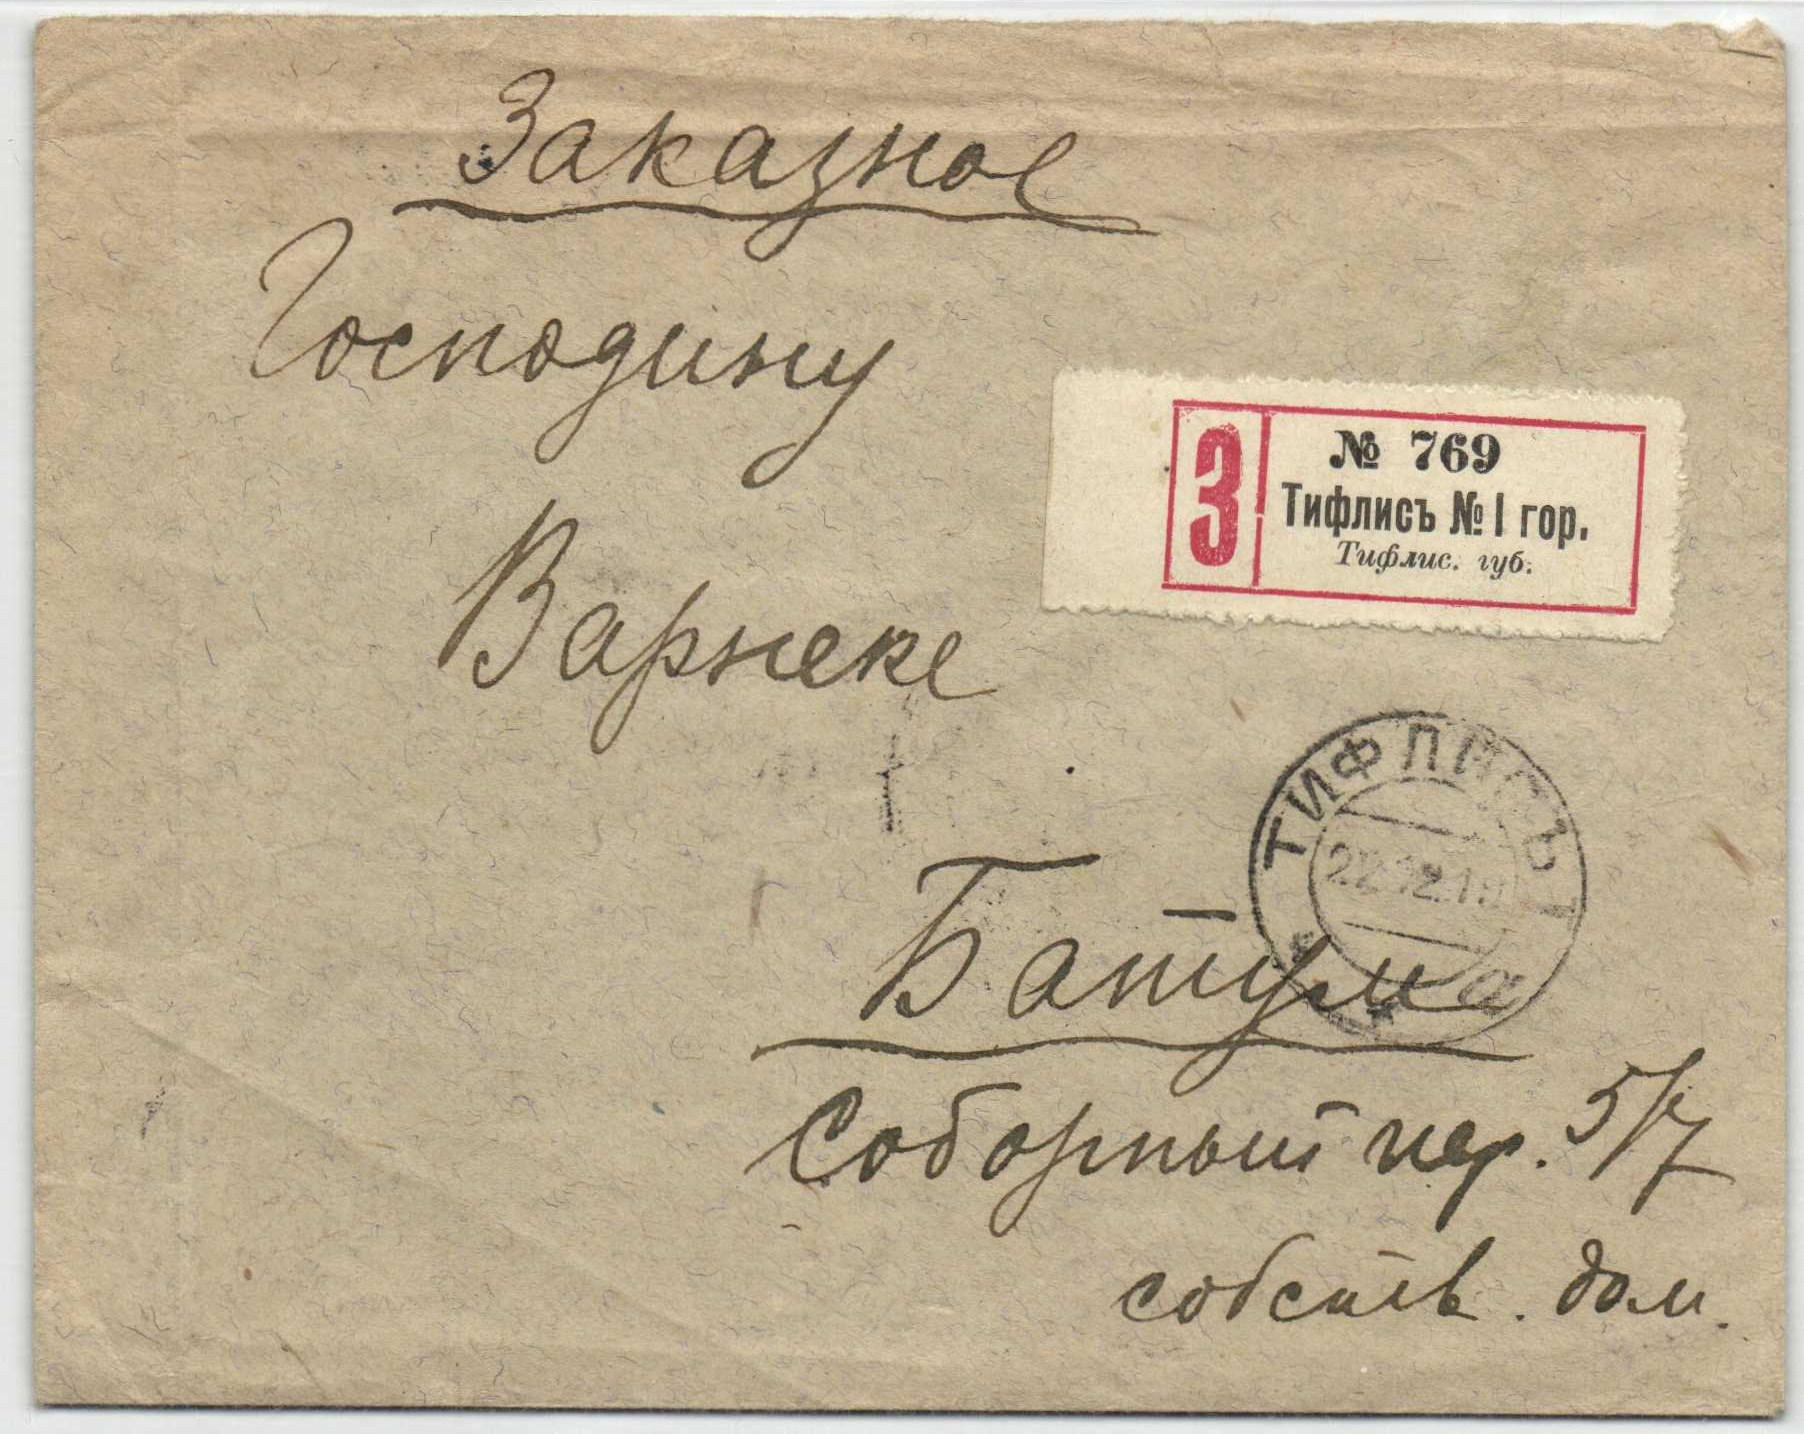 Заказное
Господину
Варнеке
З
№ 769
Тифлисъ № I гор.
Тифлис. губ.
ТИФЛИСЪ
22.12.19
а
Батум
Соборный пер. 5/7
собств. дом.